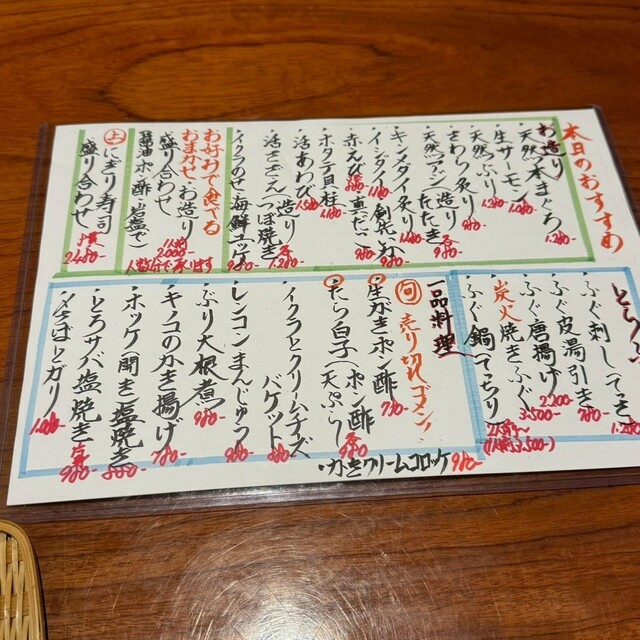 本日のおすすめ
お造り
・天然本まぐろ 1.280-
・生サーモン 1.080-
・天然ぶり 1.280-
・さわら炙り 980-
・天然アジ(造り たたき 各980-
・キンメダイ炙り
・イシダイ
・赤えび
・ホタテ貝柱 1.180-
・活あわび 1.580-
・活さざえ(造り つぼ焼き 各1.280-
・イクラのせ海鮮ユッケ 980-
お好みで食べる
おまかせお造り
盛り合わせ
醤油・ポン酢・岩塩で
1人前 2.000-
人数分で承ります
上 にぎり寿司
盛り合わせ
2.480-
とらふぐ
・ふぐ刺し(てっさ)
・ふぐ皮湯引き 780-
・ふぐ唐揚げ 2.200-
・炭火焼きふぐ 3.500-
・ふぐ鍋(てっちり)
一品料理
旬 売り切れゴメン!
・生かきポン酢 780-
・たら白子(ポン酢 天ぷら 各980-
・イクラとクリームチーズ
バケット 880-
・レンコンまんじゅう 980-
・ぶり大根煮 980-
・キノコのかき揚げ 780-
・ホッケ(開き)塩焼き 880-
・とろサバ塩焼き 980-
・〆さばとガリ 1.080-
・かきクリームコロッケ 980-